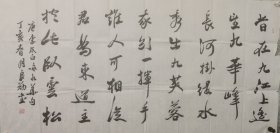 昔在九江上遥
望九華峰
河掛綠水
秀出九芙蓉
我欲一揮手
誰人可相從
君為東道主
於此卧雲松
唐李太白
丁亥春月書